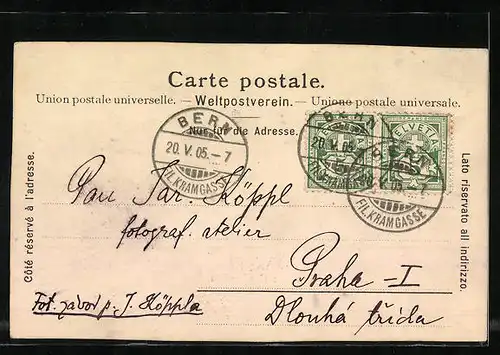 Carte postale.
Union postale universelle. — Weltpostverein. — Unione postale universale.
Nur für die Adresse.
BERN
20. V. 05. – 7
FIL. KRAMGASSE
BERN
20. V. 05.
HELVETIA
BERN
05. – 7
FIL. KRAMGASSE
Côté réservé à l'adresse.
Lato riservato all indirizzo.
Pan Jar. Köppl
fotograf. atelier
Praha – I
Dlouhá třída
Fot. závod p. J. Köppla